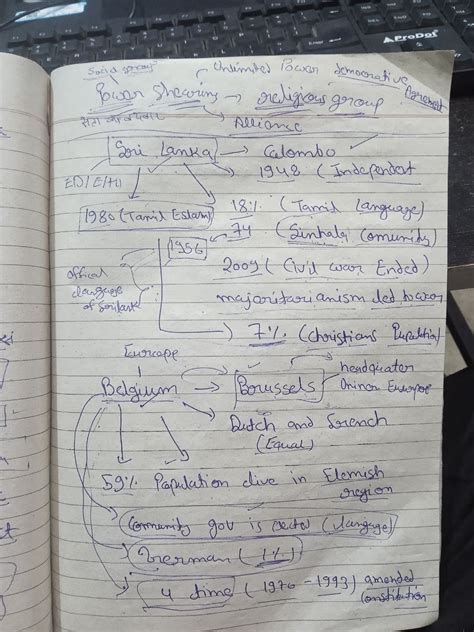 AProDot
Social group
Unlimited Power democrative
Power Shearing → religious group
सत्ता का बंटवारा
Alliance
Sri Lanka → Colombo
1948 (Independent
1980 (Tamil Eslam)
18% (Tamil language)
1956
74 (Sinhala Comunity)
offical
language
of Srilanka
2009 (Civil war Ended)
majoritarianism led to war
7% (Christians Pupulation)
Europe
Belgium → Brussels
headquater
Dutch and French
(Equal)
59% Population live in Flemish
region
Community gov is elected (language)
German (1%)
4 time (1970 - 1993) amended
Constitution